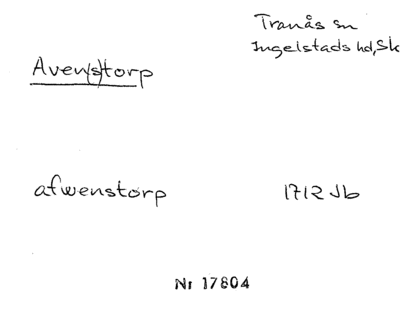 Tranås sn
Ingelstads hd, Sk
Aven(s)torp
afwenstorp 1712 Jb
Nr 17804